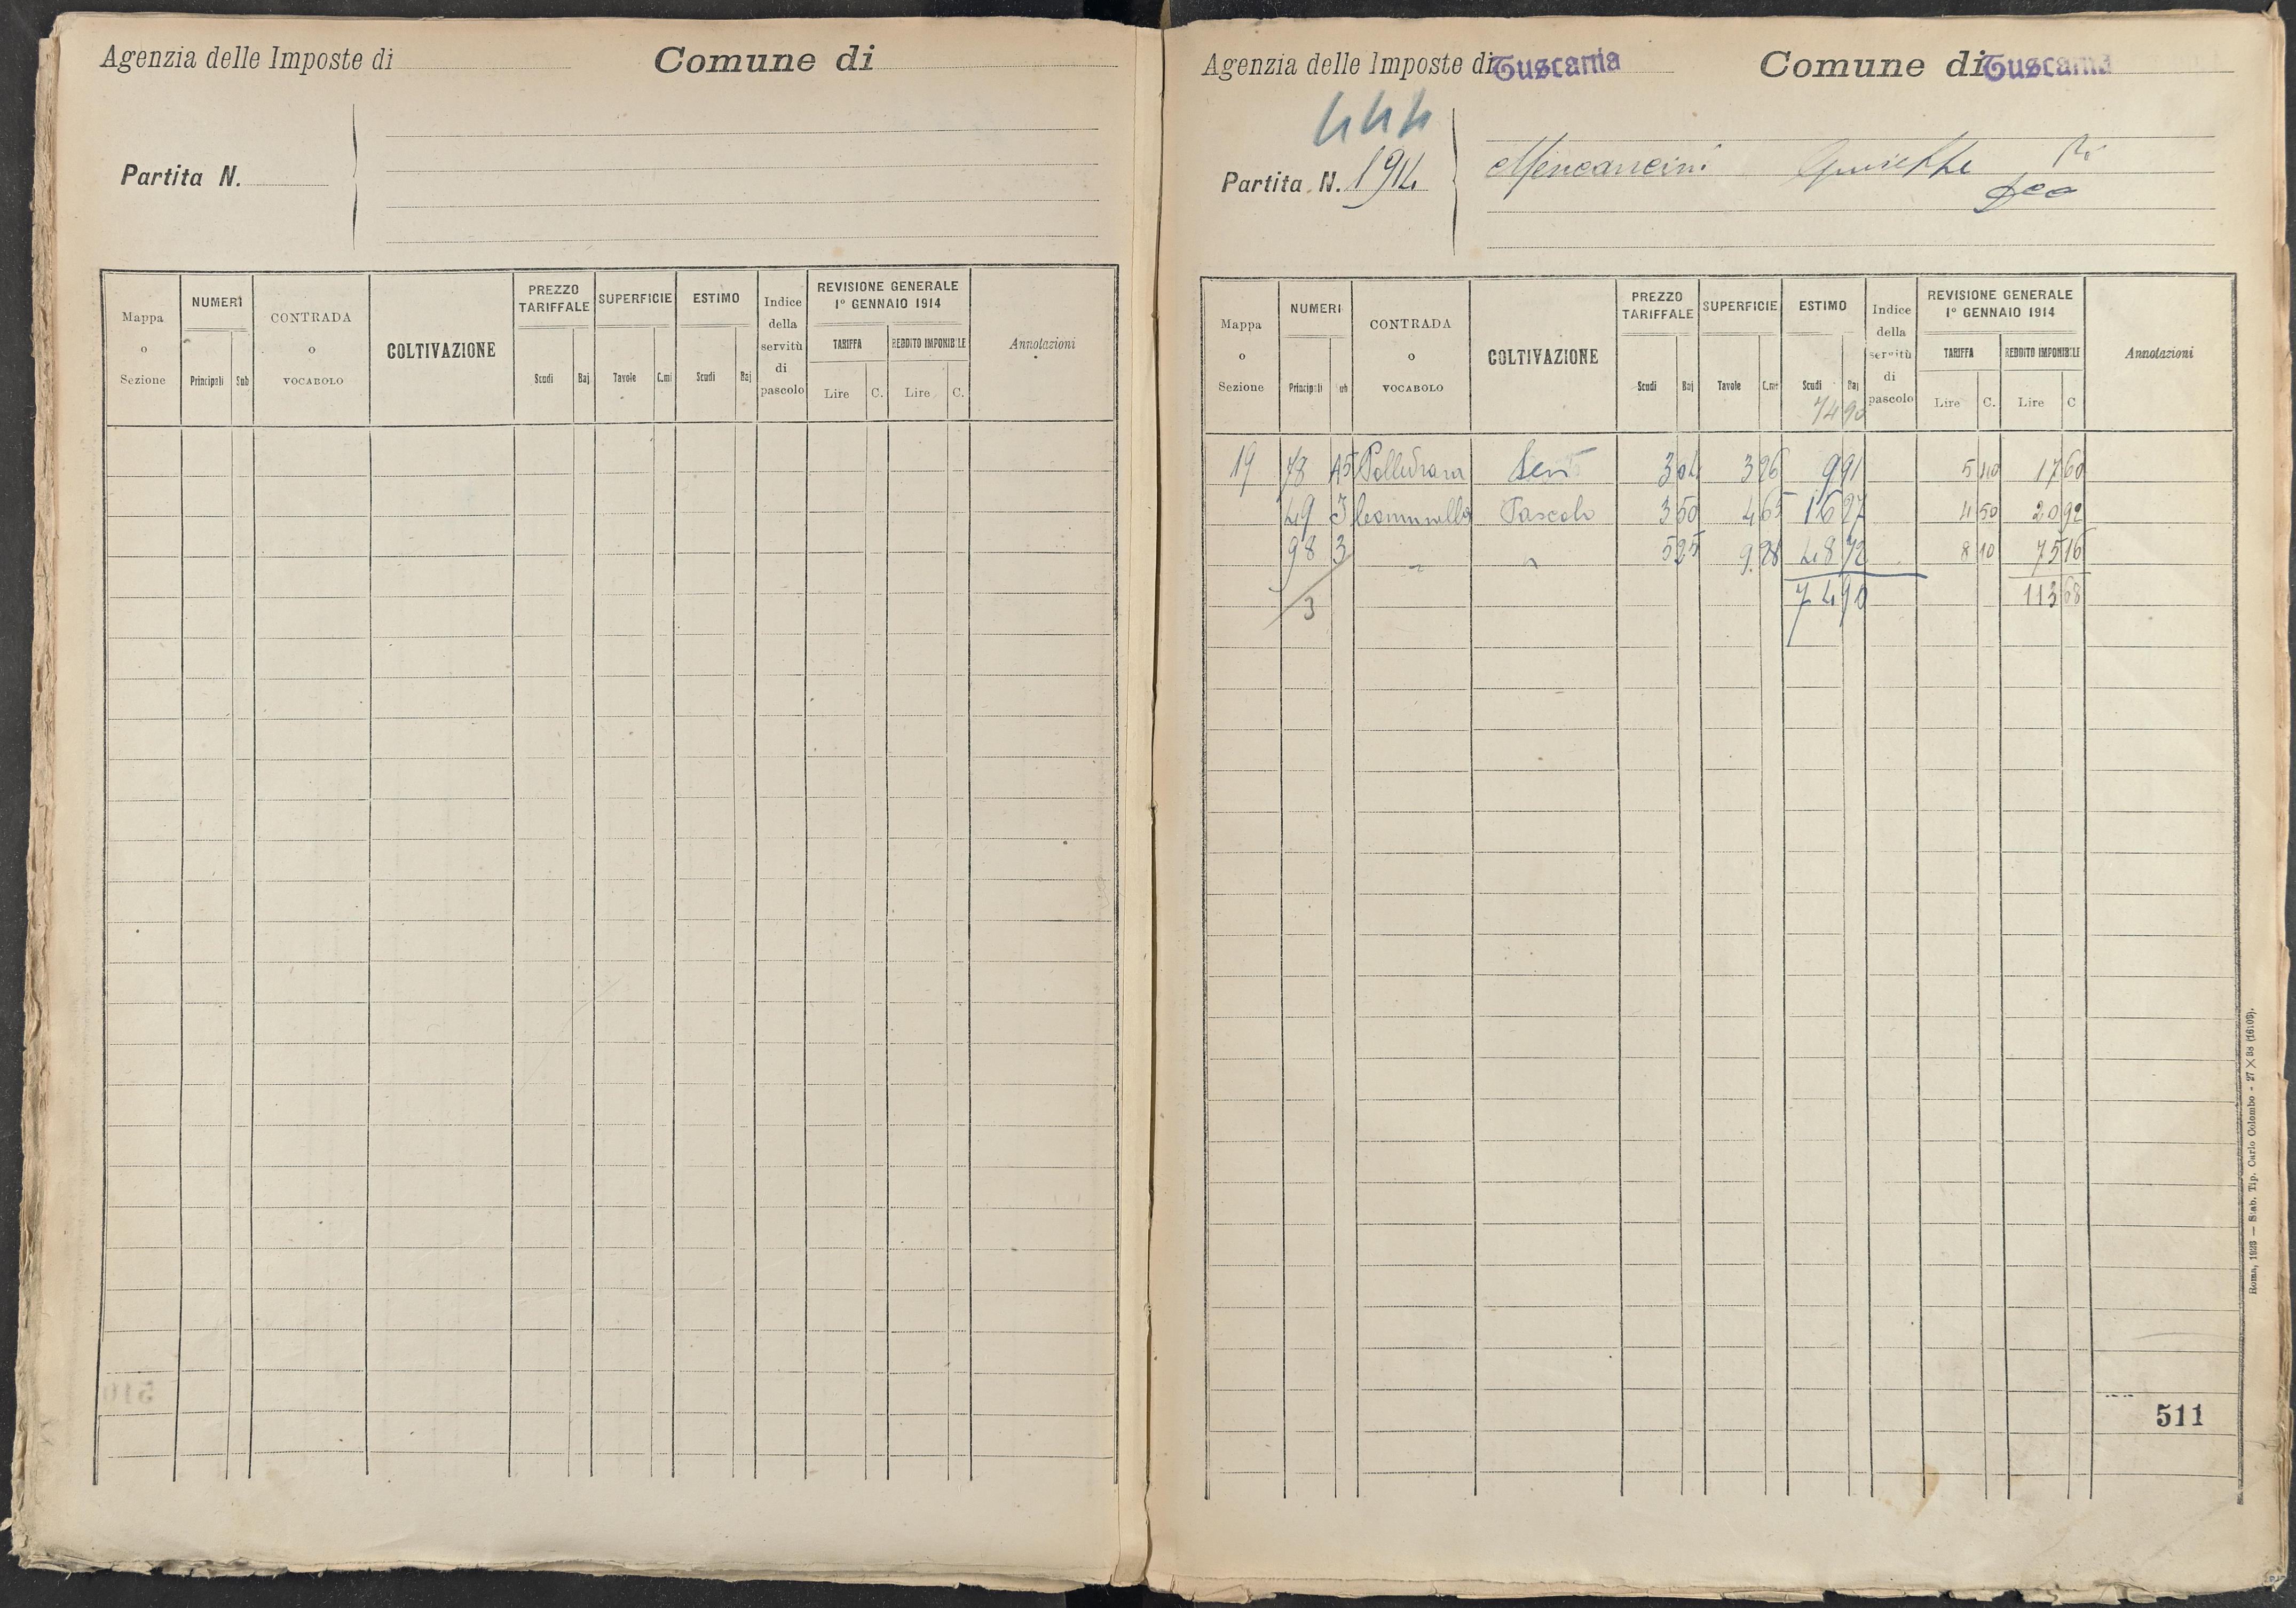 Agenzia delle Imposte di
Comune di
Partita N.
Mappa o Sezione
NUMERI
Principali Sub
CONTRADA o VOCABOLO
COLTIVAZIONE
PREZZO TARIFFALE
Scudi Baj
SUPERFICIE
Tavole C.mi
ESTIMO
Scudi Baj
Indice della servitù di pascolo
REVISIONE GENERALE
1° GENNAIO 1914
TARIFFA
Lire C.
REDDITO IMPONIBILE
Lire C.
Annotazioni
Agenzia delle Imposte di Tuscania
Comune di Tuscania
444
Partita N. 1914
Mencancini Giuseppe
Mappa o Sezione
NUMERI
Principali ub
CONTRADA o VOCABOLO
COLTIVAZIONE
PREZZO TARIFFALE
Scudi Baj
SUPERFICIE
Tavole C.mi
ESTIMO
Scudi Baj
74 90
Indice della servitù di pascolo
REVISIONE GENERALE
1° GENNAIO 1914
TARIFFA
Lire C.
REDDITO IMPONIBILE
Lire C
Annotazioni
19 78 A5 Pollidrara Sem 3 04 3 26 9 91 5 40 17 60
49 Pascolo 3 50 4 65 16 27 4 50 20 92
98 3 " " 5 25 9 28 48 72 8 10 75 16
3 74 90 113 68
511
Roma, 1926 — Stab. Tip. Carlo Colombo - 27 X 38 (16109).